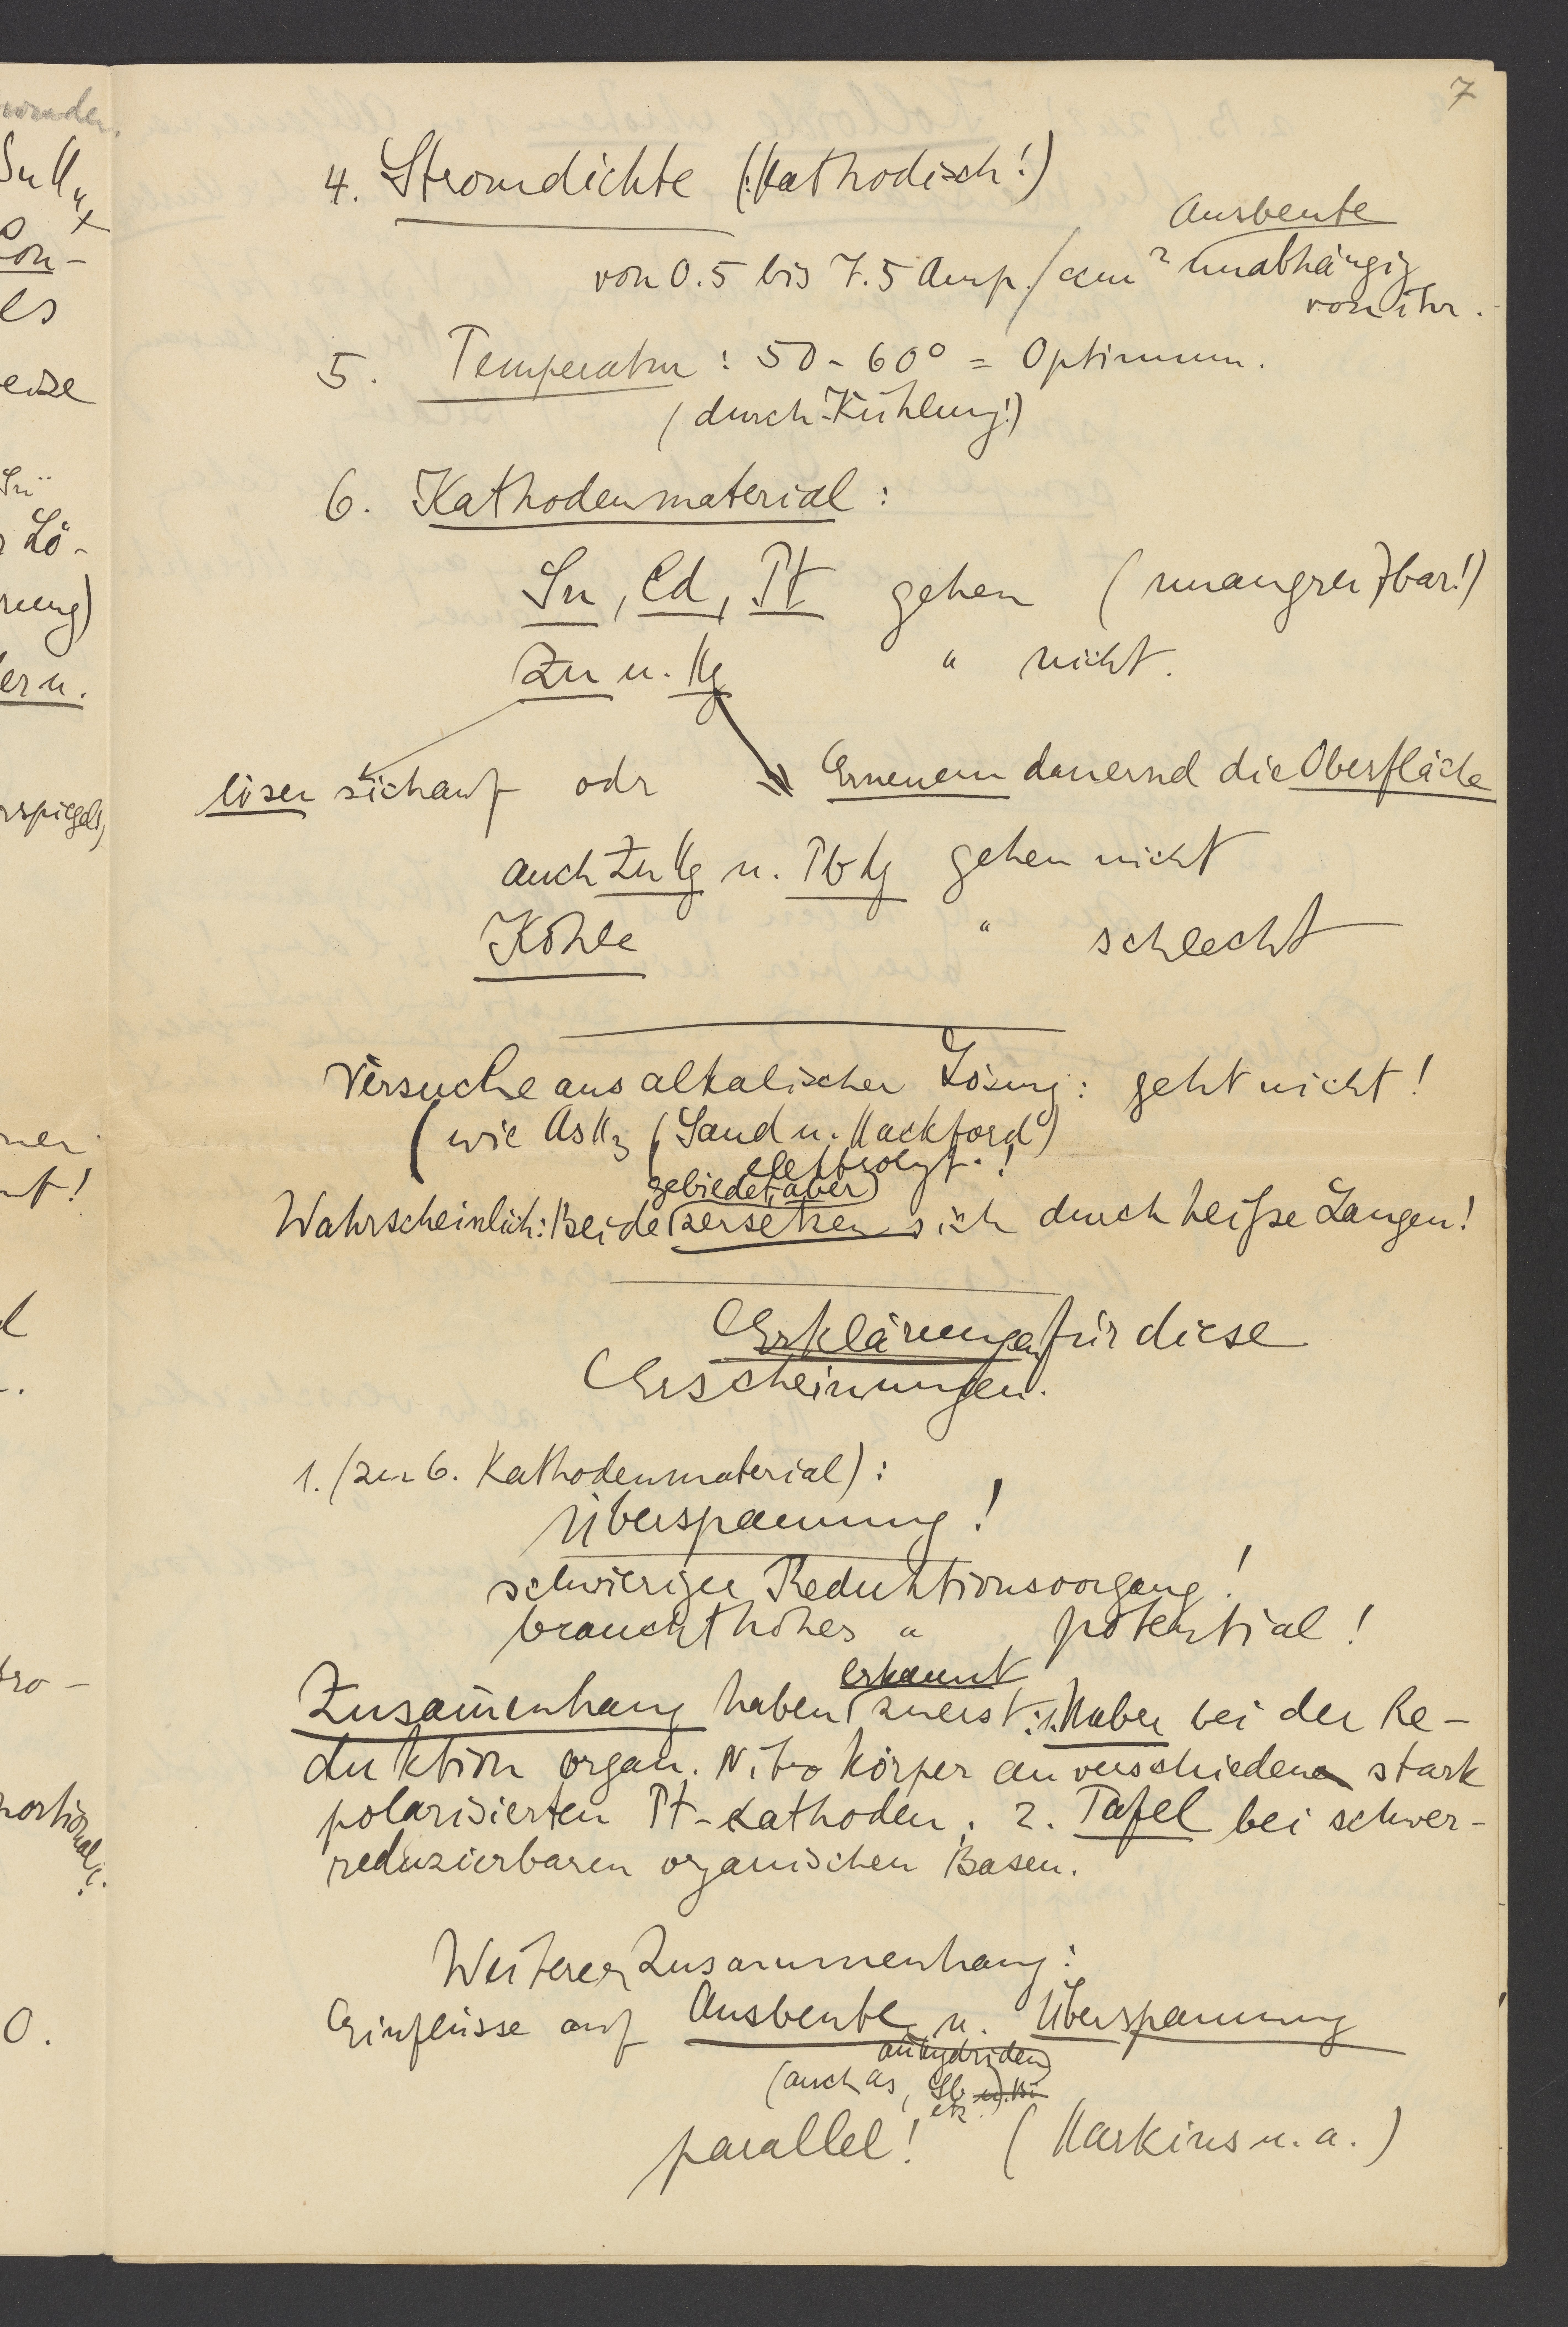 7
4. Stromdichte (:Kathodisch!)
Ausbeute
von 0.5 bis 7.5 Amp./ccm² unabhängig
von ihr.
5. Temperatur : 50 - 60° = Optimum.
(durch Kühlung!)
6. Kathodenmaterial :
Sn, Cd, Pt gehen (unangreifbar!)
Zn u. Hg " nicht.
lösen sich auf odr Erneuern dauernd die Oberfläche
auch ZnHg u. PbHg gehen nicht
Kohle " schlecht
Versuche aus alkalischer Lösung: geht nicht!
(wie AsH₃ (Sand u. Hackford)
elektrolyt.!
gebildet, aber
Wahrscheinlich: Beide zersetzen sich durch heiße Laugen!
Erklärungen für diese
Erscheinungen.
1. (zu 6. Kathodenmaterial) :
Überspannung!
schwieriger Reduktionsvorgang!
braucht hohes " potential!
erkannt
Zusam̄enhang haben zuerst: 1. Haber bei der Re-
duktion organ. Nitrokörper an verschieden stark
polarisierten Pt-Kathoden. 2. Tafel bei schwer-
reduzierbaren organischen Basen.
Weiterer Zusammenhang:
Einflüsse auf Ausbeute u. Überspannung
anhydriden)
(auch As, Sb u. Bi
etc.)
parallel! (Harkins u. a.)
wonden.
SnH₄
on-
es
Lö-
rung)
er u.
rspiegels,
ner
nf!
tro-
portional
0.